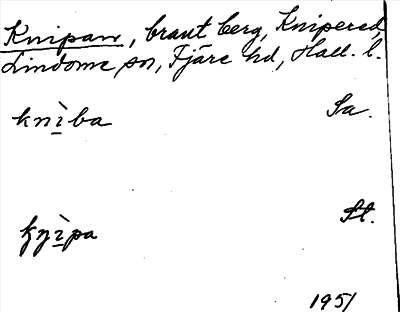 Knipan, brant berg, Knipered,
Lindome sn, Fjäre hd, Hall. l.
knìba Sa.
knìpa St.
1951